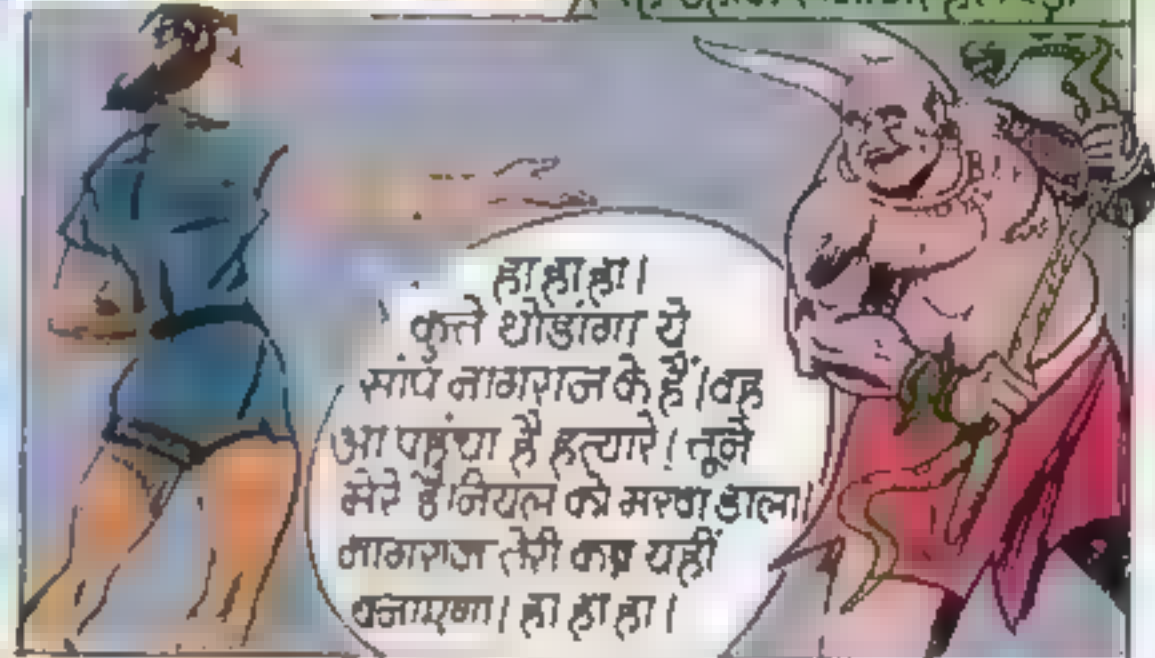 हा हा हा।
कुत्ते थोडांगा ये
सांप नागराज के हैं। वह
आ पहुंचा है हत्यारे। तूने
मेरे डेनियल को मरवा डाला
नागराज तेरी कब्र यहीं
बनाएगा। हा हा हा।